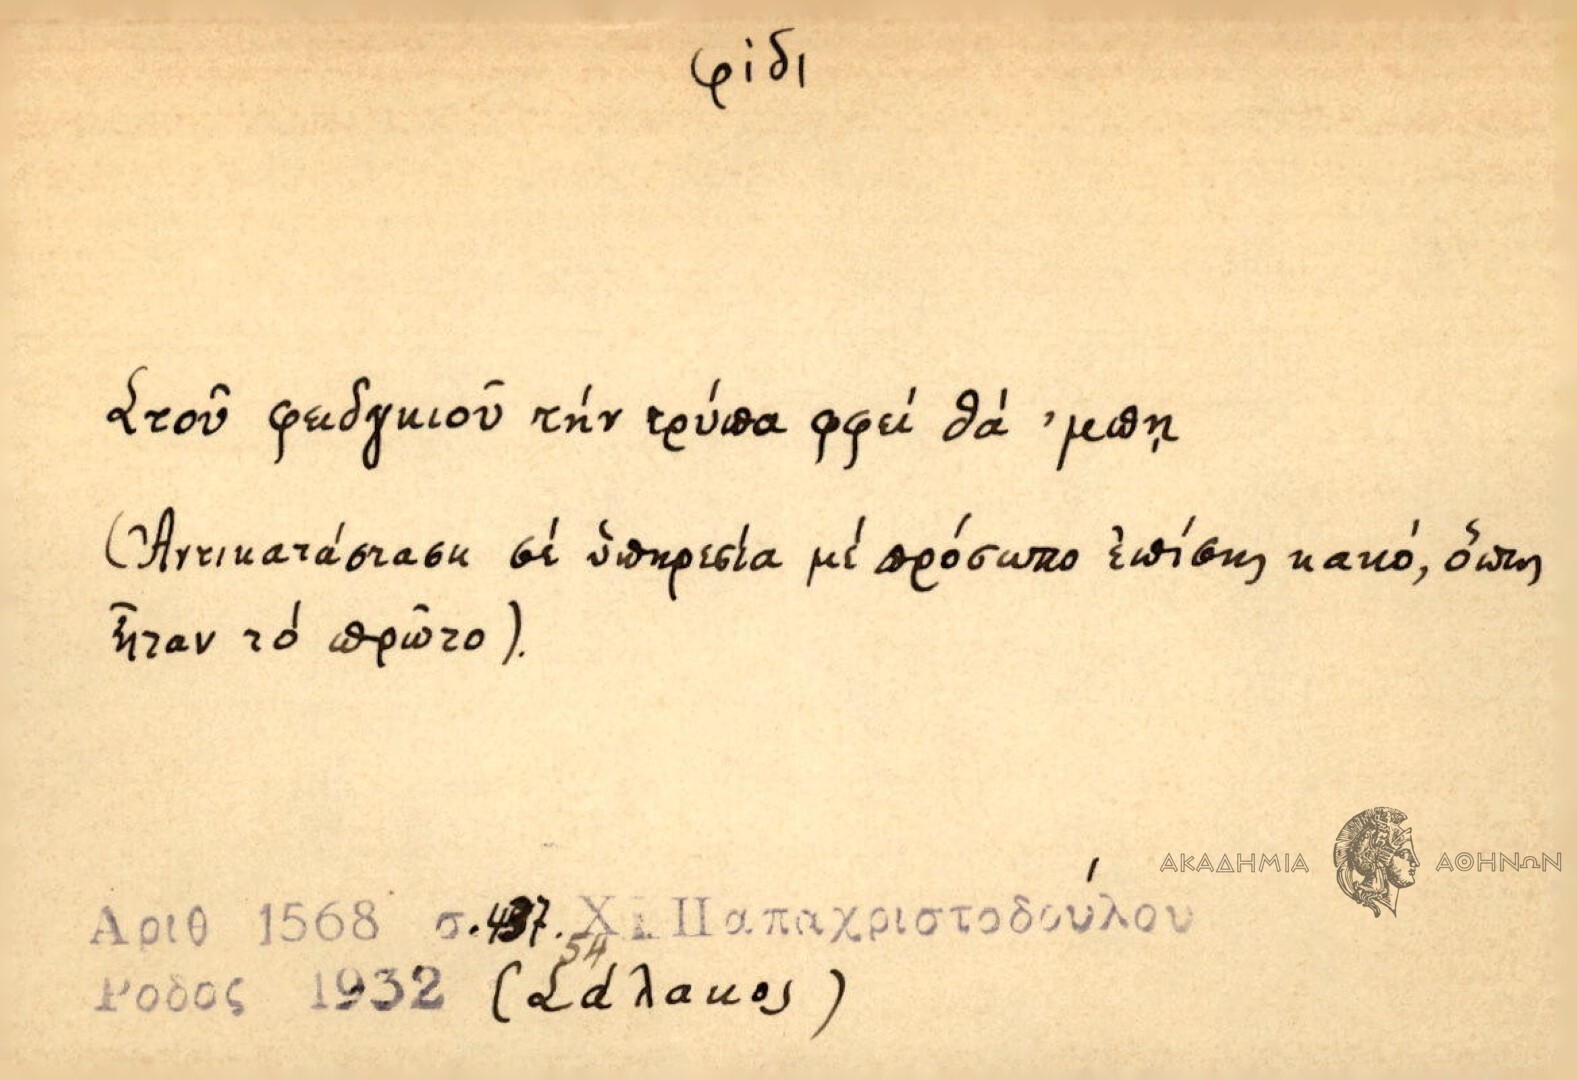 φίδι
Στοῦ φειδγκιοῦ τήν τρύπα φφεί θά ’μπῃ
(Ἀντικατάσταση σέ ὑπηρεσία μέ πρόσωπο ἐπίσης κακό, ὅπως
ἦταν τό πρῶτο).
ΑΚΑΔΗΜΙΑ ΑΘΗΝΩΝ
Αριθ 1568 σ. 437. Χ. Παπαχριστοδούλου
54
Ροδος 1932 (Σάλακος)